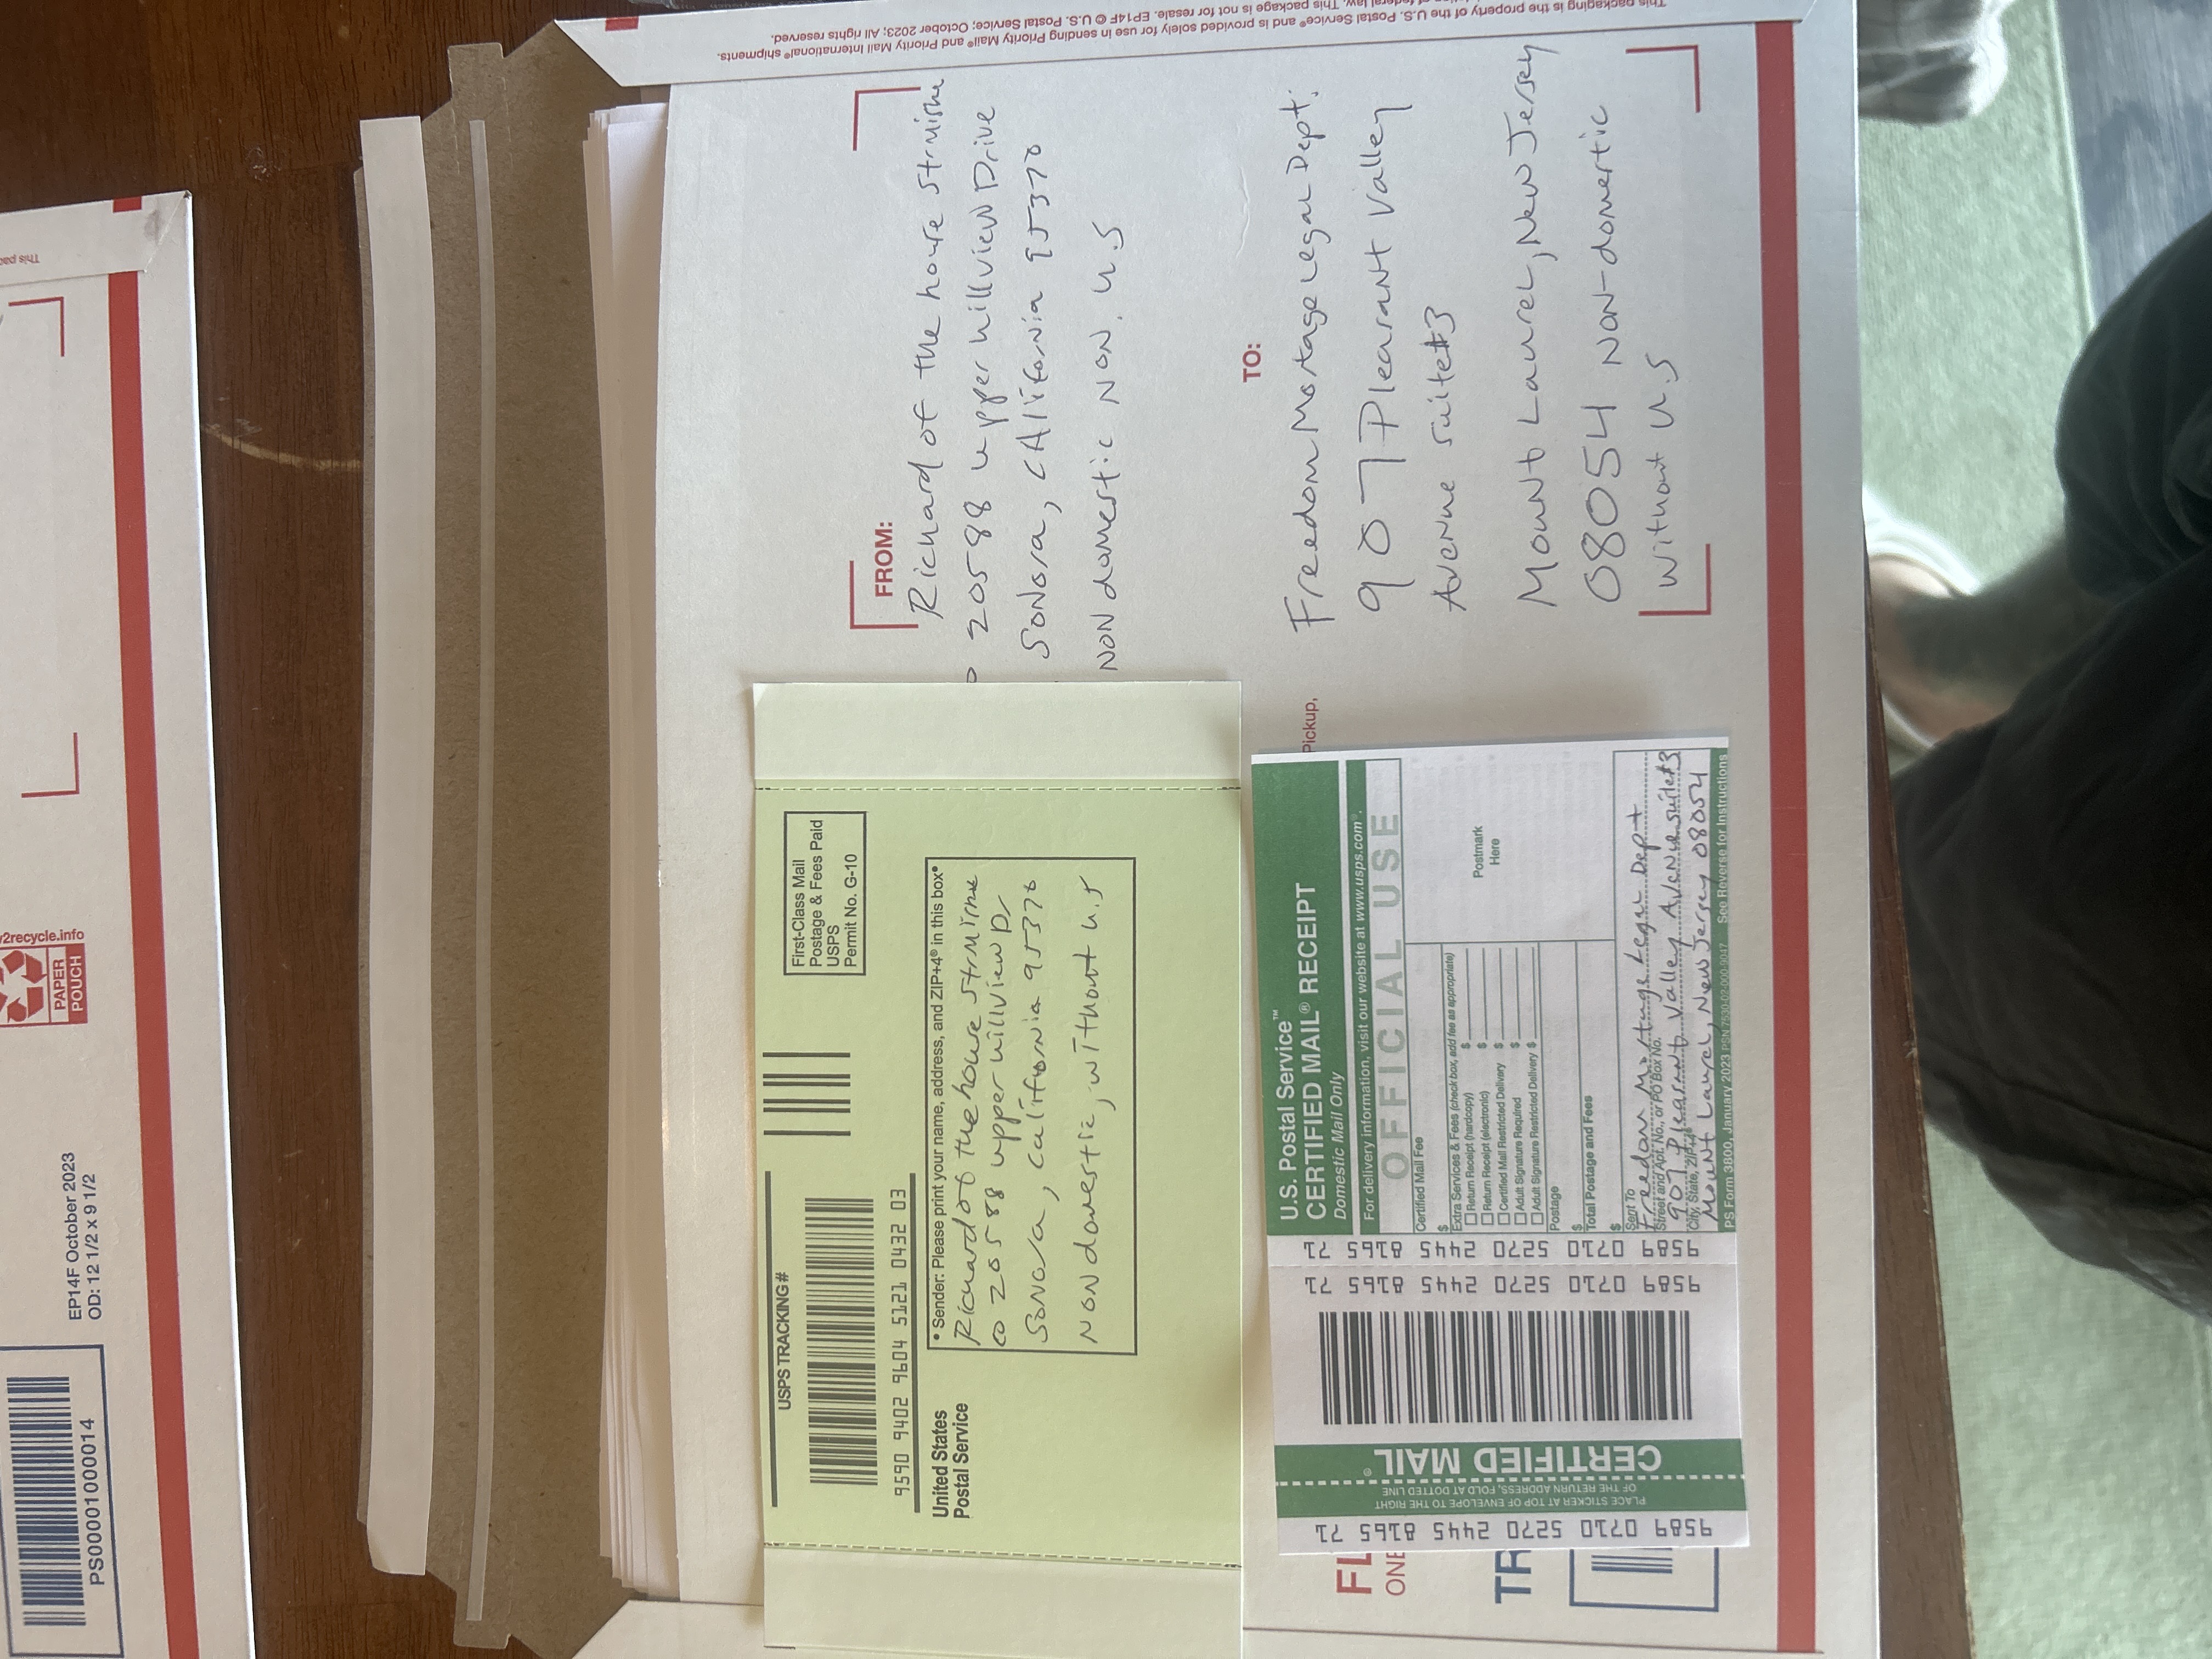 PS00001000014
EP14F October 2023
OD: 12 1/2 x 9 1/2
PAPER
POUCH
2recycle.info
This pac
USPS TRACKING #
9590 9402 9604 5121 0432 03
First-Class Mail
Postage & Fees Paid
USPS
Permit No. G-10
United States
Postal Service
• Sender: Please print your name, address, and ZIP+4® in this box•
Richard of the house
co 20588 upper hillview Dr
Sonora, California 95370
NON domestic, without U.S
FROM:
Richard of the house
20588 upper hillview Drive
Sonora, CAlifornia 95370
NON domestic NON. U.S
TO:
Freedom Mortage Legal Dept.
907 Pleasant Valley
Avenue suite#3
Mount Laurel, New Jersey
08054 NON-domestic
without U.S
Pickup,
FL
ONE
TR
9589 0710 5270 2445 8165 71
PLACE STICKER AT TOP OF ENVELOPE TO THE RIGHT
OF THE RETURN ADDRESS, FOLD AT DOTTED LINE
CERTIFIED MAIL®
9589 0710 5270 2445 8165 71
9589 0710 5270 2445 8165 71
U.S. Postal Service™
CERTIFIED MAIL® RECEIPT
Domestic Mail Only
For delivery information, visit our website at www.usps.com®.
OFFICIAL USE
Certified Mail Fee
$
Extra Services & Fees (check box, add fee as appropriate)
Return Receipt (hardcopy) $
Return Receipt (electronic) $
Certified Mail Restricted Delivery $
Adult Signature Required $
Adult Signature Restricted Delivery $
Postmark
Here
Postage
$
Total Postage and Fees
$
Sent To
Freedom Mortage Legal Dept
Street and Apt. No., or PO Box No.
907 Pleasant Valley Avenue suite#3
City, State, ZIP+4®
Mount Laurel, New Jersey 08054
PS Form 3800, January 2023 PSN 7530-02-000-9047 See Reverse for Instructions
This packaging is the property of the U.S. Postal Service® and is provided solely for use in sending Priority Mail® and Priority Mail International® shipments.
of federal law. This package is not for resale. EP14F © U.S. Postal Service; October 2023; All rights reserved.